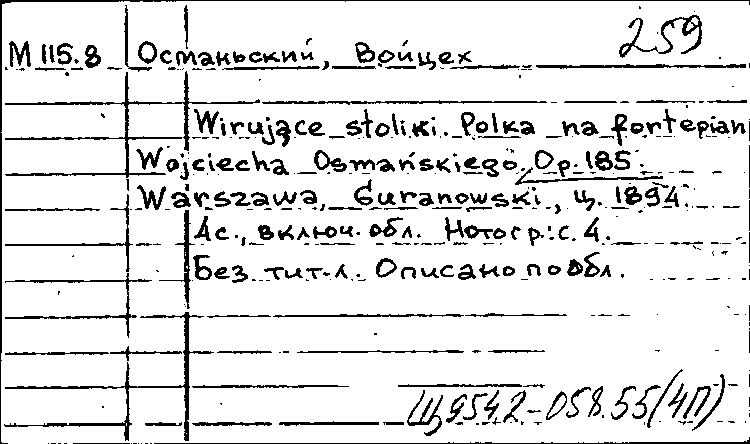 259
М 115.8 Османьский, Войцех
Wirujące stoliki. Polka na fortepian
Wojciecha Osmańskiego. Op.185.
Warszawa, Guranowski, ц. 1894.
4с., включ. обл. Нотогр.: с. 4.
Без тит. л. Описано по обл.
Щ9542-058.55(4П)